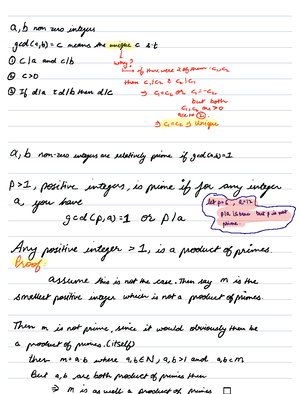 a, b non zero integers
gcd(a,b) = c means the unique c s.t
① c|a and c|b
why?
→ if there were 2 of them c₁, c₂
② c>0
then c₁|c₂ & c₂|c₁
③ If d|a & d|b then d|c
⇒ c₁=c₂ or c₁=-c₂
but both
c₁, c₂ are >0
⇒ c₁=c₂ ⇒ Unique
a, b non-zero integers are relatively prime if gcd(a,b)=1
p>1, positive integers, is prime if for any integer
a you have
gcd(p,a)=1 or p|a
let p=6, a=12
p|a is true but p is not
prime
Any positive integer > 1, is a product of primes.
Proof:
assume this is not the case. Then say m is the
smallest positive integer which is not a product of primes.
Then m is not prime, since it would obviously then be
a product of primes. (itself)
then m=a·b where a,b∈N, a,b>1 and a,b<m
But a,b are both product of primes then
⇒ m is as well a product of primes □